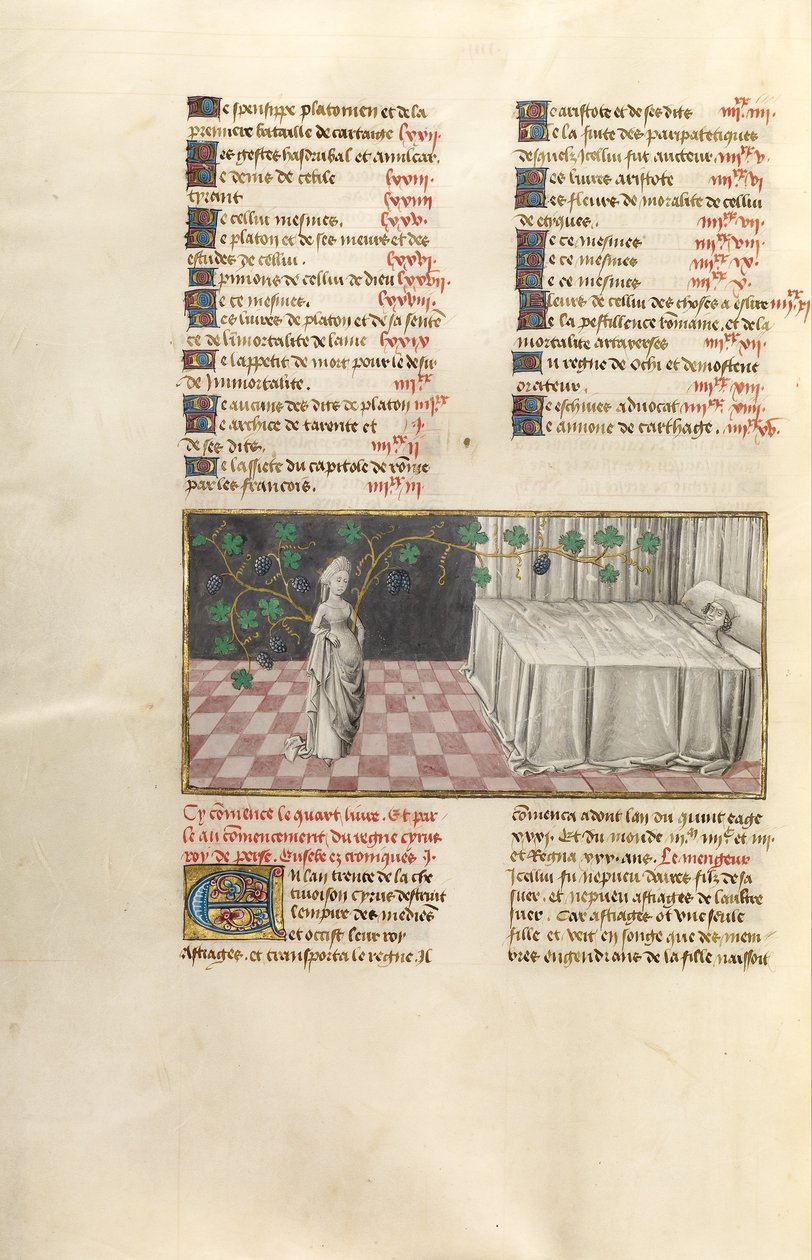 De speusippe platonien et de la
premiere bataille de cartaige lxxii.
Des gestes hasdrubal et amilcar.
De denis de cecile lxxiii.
tyrant lxxiiii
De cellui mesmes. lxxv.
De platon et de ses meurs et des
estudes de cellui. lxxvi.
Opinions de cellui de dieu lxxvii.
De ce mesmes. lxxviii.
Des livres de platon et de sa senten̄
ce de l'imortalite de lame lxxix
De lappetit de mort pour le desir
de Immortalite. iiii.xx
De aucuns des dits de platon iiii.xx
De archite de tarente et .i.
de ses dits. iiii.xx ii
De lassiete du capitole de rōme
par les francois. iiii.xx iii
De aristote et de ses dits iiii.xx iiii.
De la suite des paripatetiques
desquelz Icellui fut aucteur iiii.xx v.
Des livres aristote iiii.xx vi
Des fleurs de moralite de cellui
de etiques. iiii.xx vii.
De ce mesmes iiii.xx viii.
De ce mesmes iiii.xx ix.
De ce mesmes iiii.xx x.
Fleurs de cellui des choses a eslire iiii.xx xi
De la pestillence rōmaine. et de la
mortalite artaxerses iiii.xx xii.
Du regne de Ochi et demostene
orateur. iiii.xx xiii.
De eschines advocat iiii.xx xiiii.
De annone de carthage. iiii.xx xv.
Cy cōmence le quart livre. Et par
le au cōmencement du regne cyrus
roy de perse. Eusebe ez croniques .i.
En lan trente de la che
tivoison cyrus destruit
lempire des mediēs
et occist leur roy
Astiages. et transporta le regne. Il
cōmenca adont lan du quint eage
xxxi. Et du monde iii.m iiii.c et iiii.
et Regna xxx. ans. Le mengeur
Icellui fu nepueu daires filz de sa
suer. et nepueu astiages de laultre
suer. Car astiages ot une seule
fille et veit en songe que des mem
bres engendrans de la fille naissoit